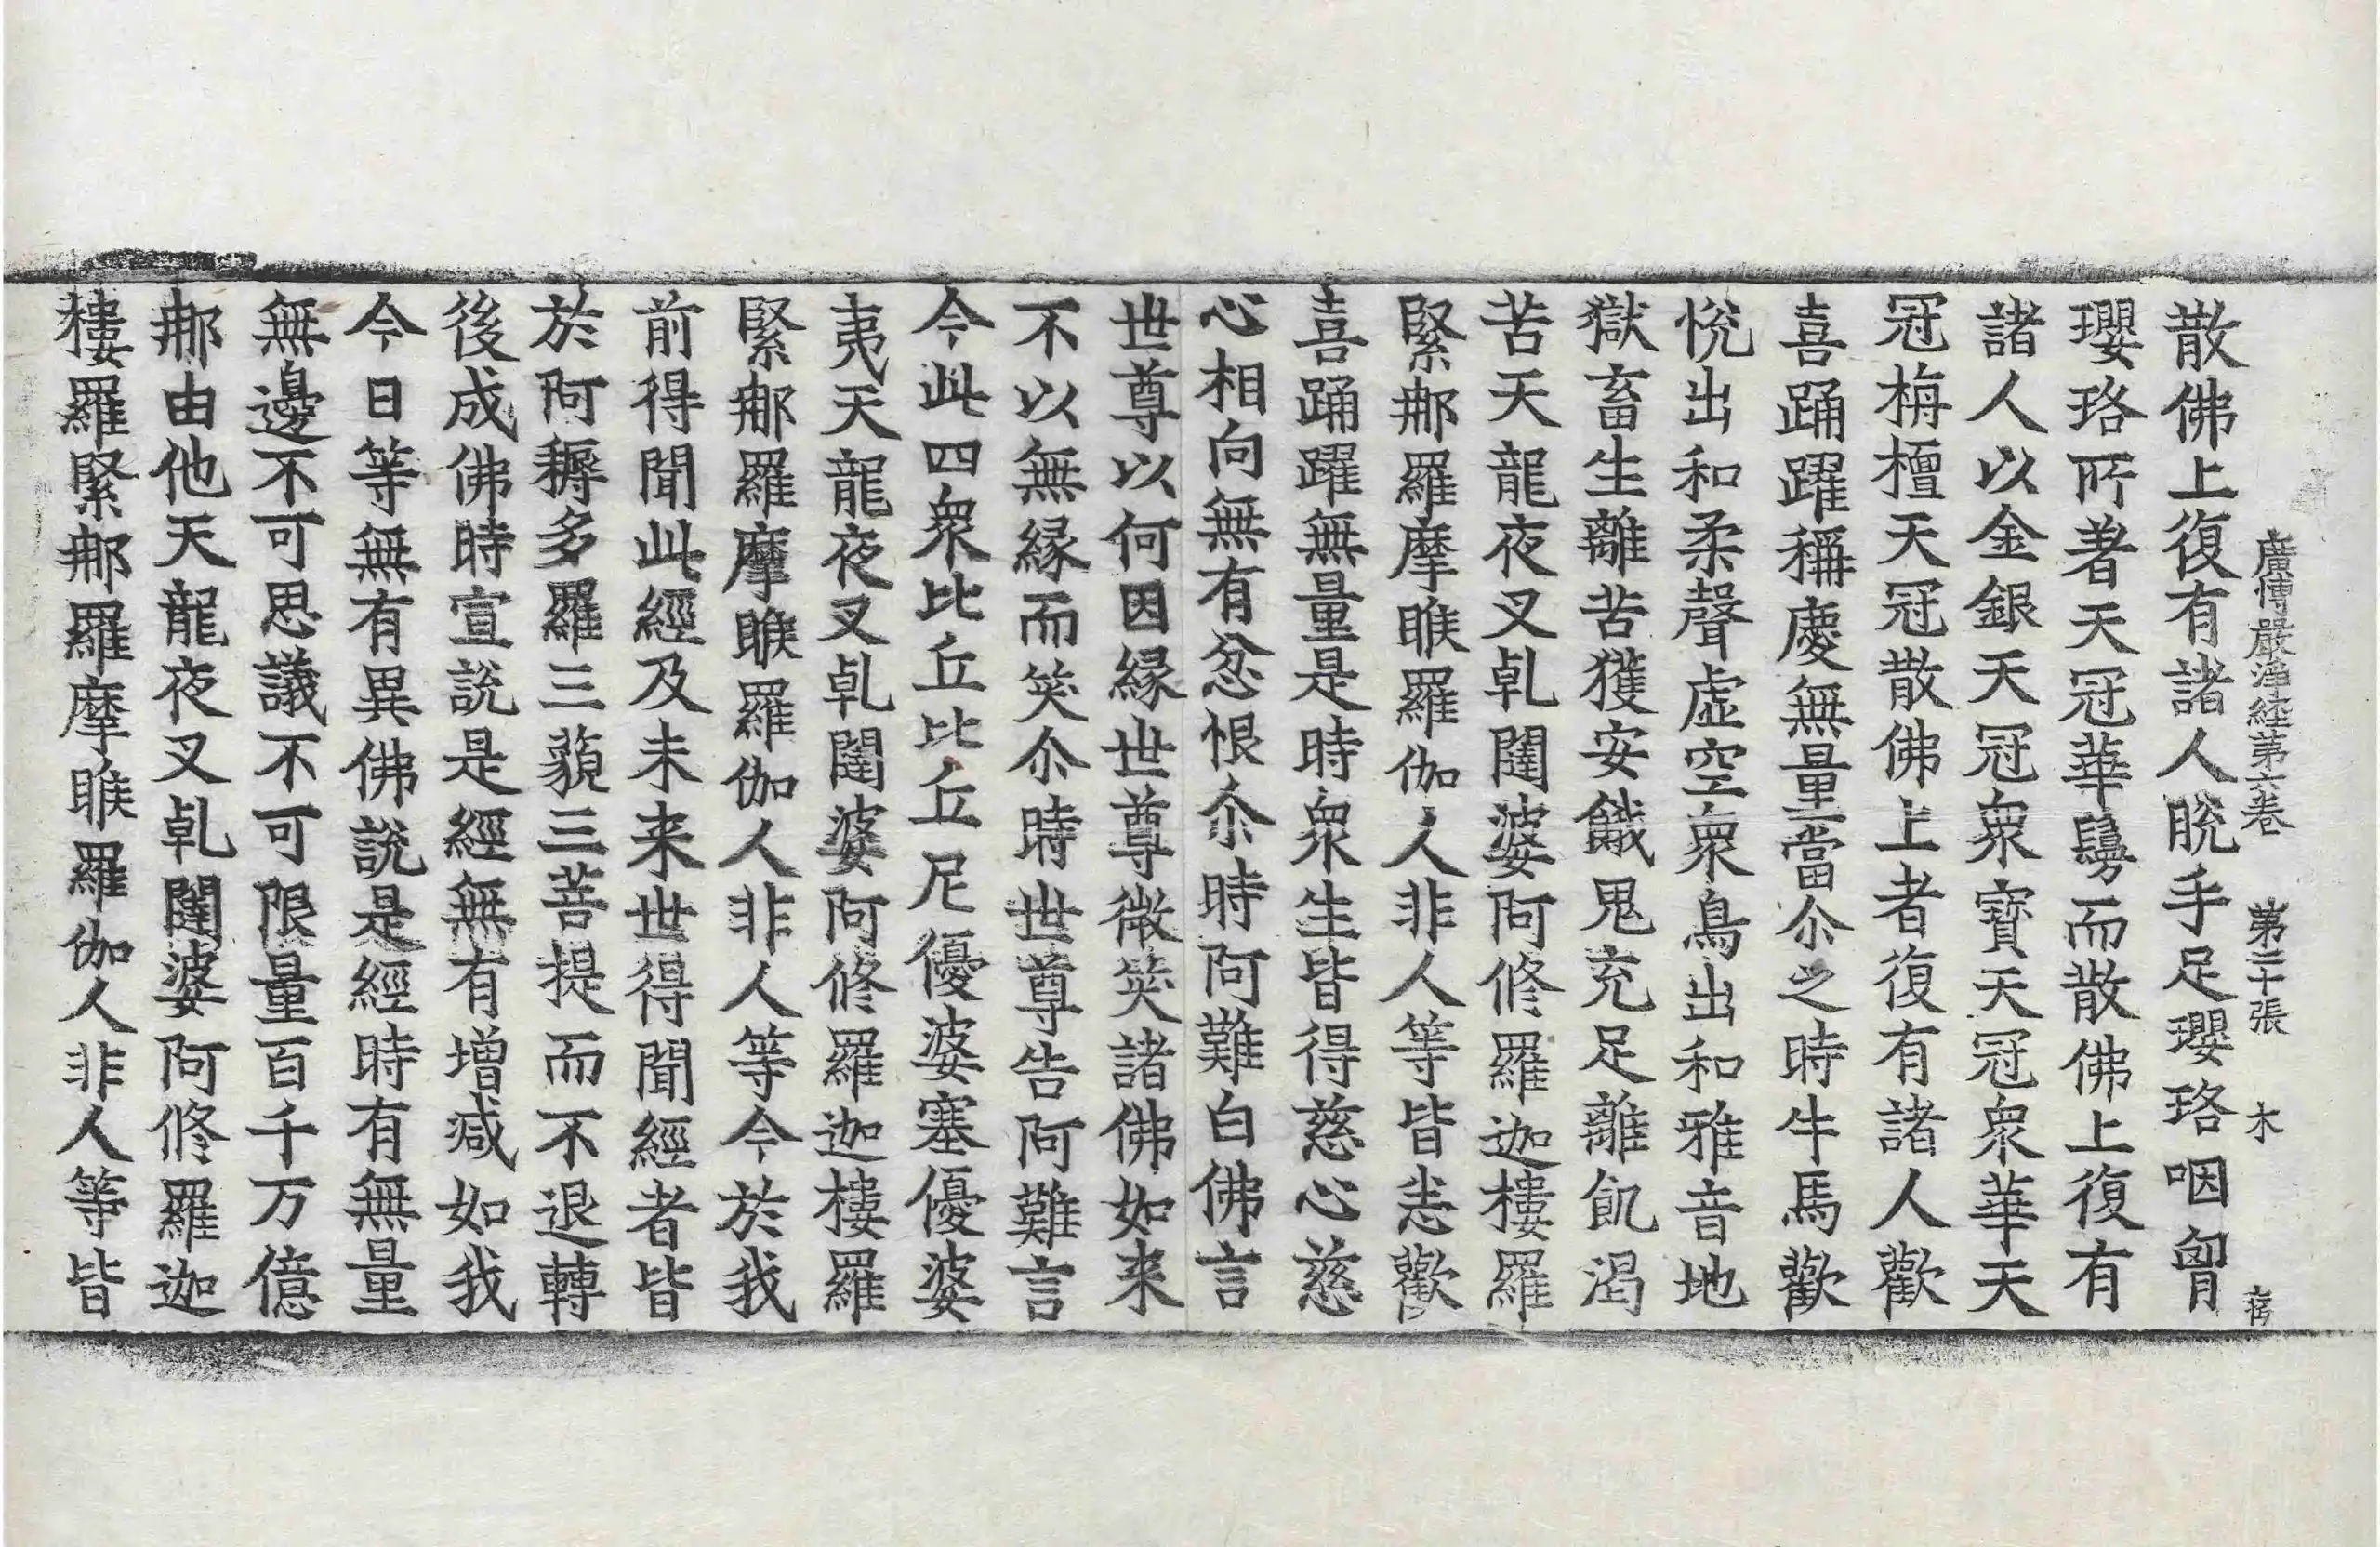 廣博嚴淨經第六卷　第二十張　木
散佛上復有諸人脫手足瓔珞咽胷
瓔珞所著天冠華鬘而散佛上復有
諸人以金銀天冠衆寶天冠衆華天
冠栴檀天冠散佛上者復有諸人歡
喜踊躍稱慶無量當尒之時牛馬歡
悅出和柔聲虛空衆鳥出和雅音地
獄畜生離苦獲安餓鬼充足離飢渴
苦天龍夜叉乹闥婆阿修羅迦樓羅
緊那羅摩睺羅伽人非人等皆恙歡
喜踊躍無量是時衆生皆得慈心慈
心相向無有忿恨尒時阿難白佛言
世尊以何因縁世尊微笑諸佛如来
不以無縁而笑尒時世尊告阿難言
今此四衆比丘比丘尼優婆塞優婆
夷天龍夜叉乹闥婆阿修羅迦樓羅
緊那羅摩睺羅伽人非人等今於我
前得聞此經及未来世得聞經者皆
於阿耨多羅三藐三菩提而不退轉
後成佛時宣說是經無有增减如我
今日等無有異佛說是經時有無量
無邊不可思議不可限量百千万億
那由他天龍夜叉乹闥婆阿修羅迦
樓羅緊那羅摩睺羅伽人非人等皆